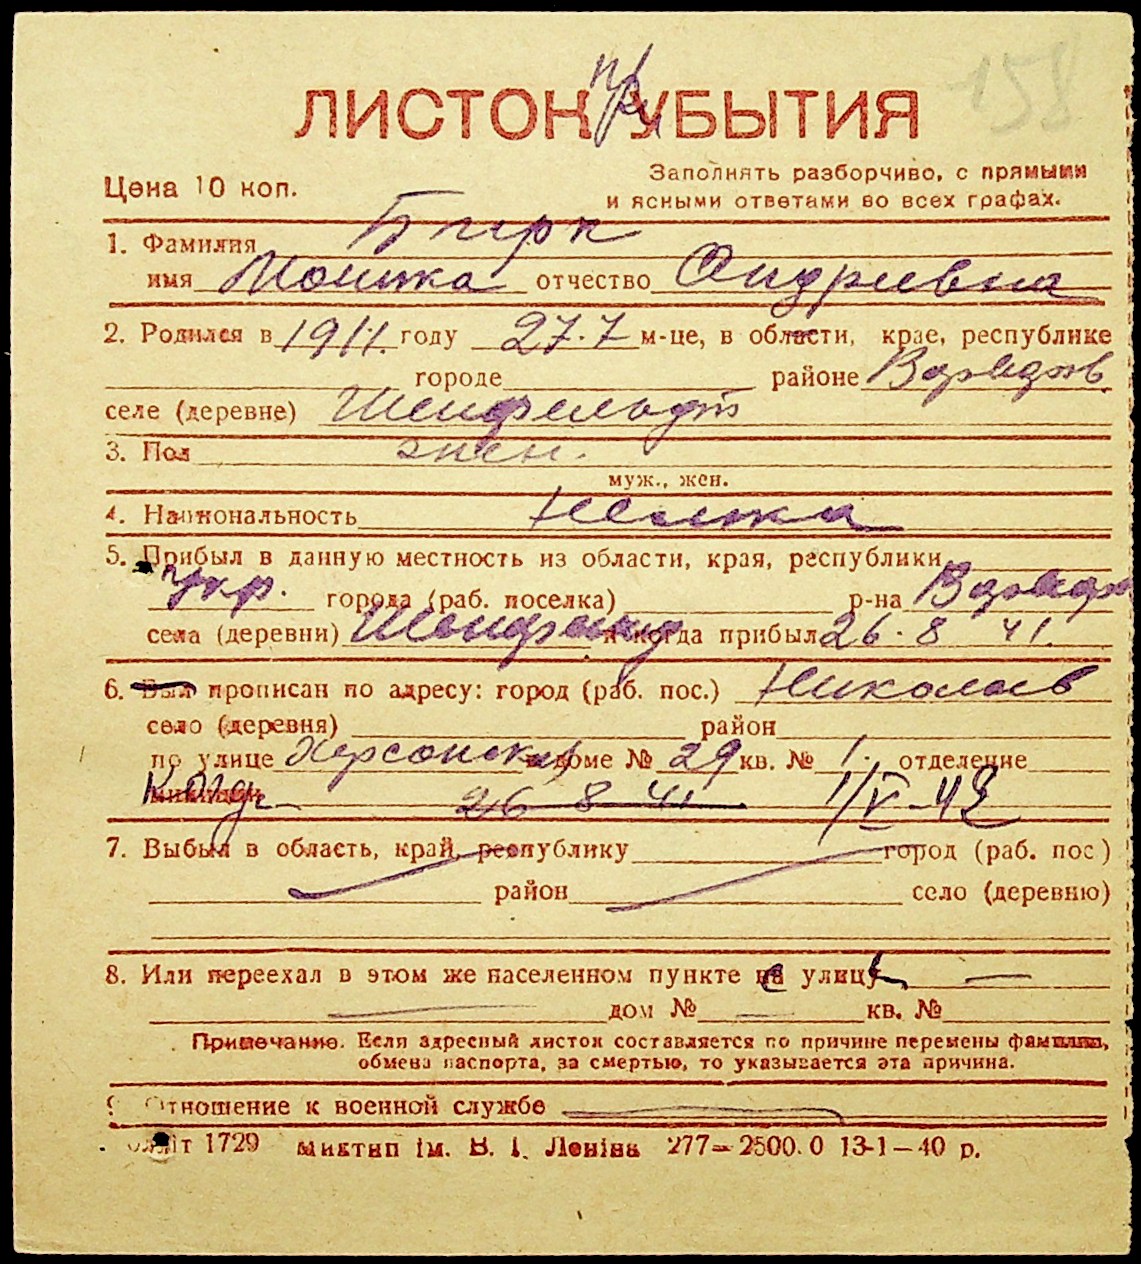 158
при
ЛИСТОК УБЫТИЯ
Цена 10 коп.
Заполнять разборчиво, с прямыми
и ясными ответами во всех графах.
1. Фамилия Бирк
имя отчество Андривна
2. Родился в 1911. году 27.7 м-це, в области, крае, республике
городе районе
селе (деревне) Шенфельдт
3. Пол жен.
муж., жен.
4. Национальность Немка
5. Прибыл в данную местность из области, края, республики
Укр. города (раб. поселка) р-на
села (деревни) и когда прибыл 26.8 41.
6. Был прописан по адресу: город (раб. пос.) Николаев
село (деревня) район
по улице Херсонская в доме № 29 кв. № 1. отделение
милиции Когда 26 8 41 1/V-42
7. Выбыл в область, край, республику город (раб. пос.)
район село (деревню)
8. Или переехал в этом же населенном пункте на улицу —
дом № — кв. №
Примечание. Если адресный листок составляется по причине перемены фамилии,
обмена паспорта, за смертью, то указывается эта причина.
9. Отношение к военной службе
1729 Миктип ім. В. І. Леніна 277—2500.0 13-1—40 р.